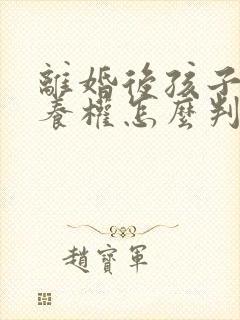 離婚後孩子
養權怎麼判
趙寶軍